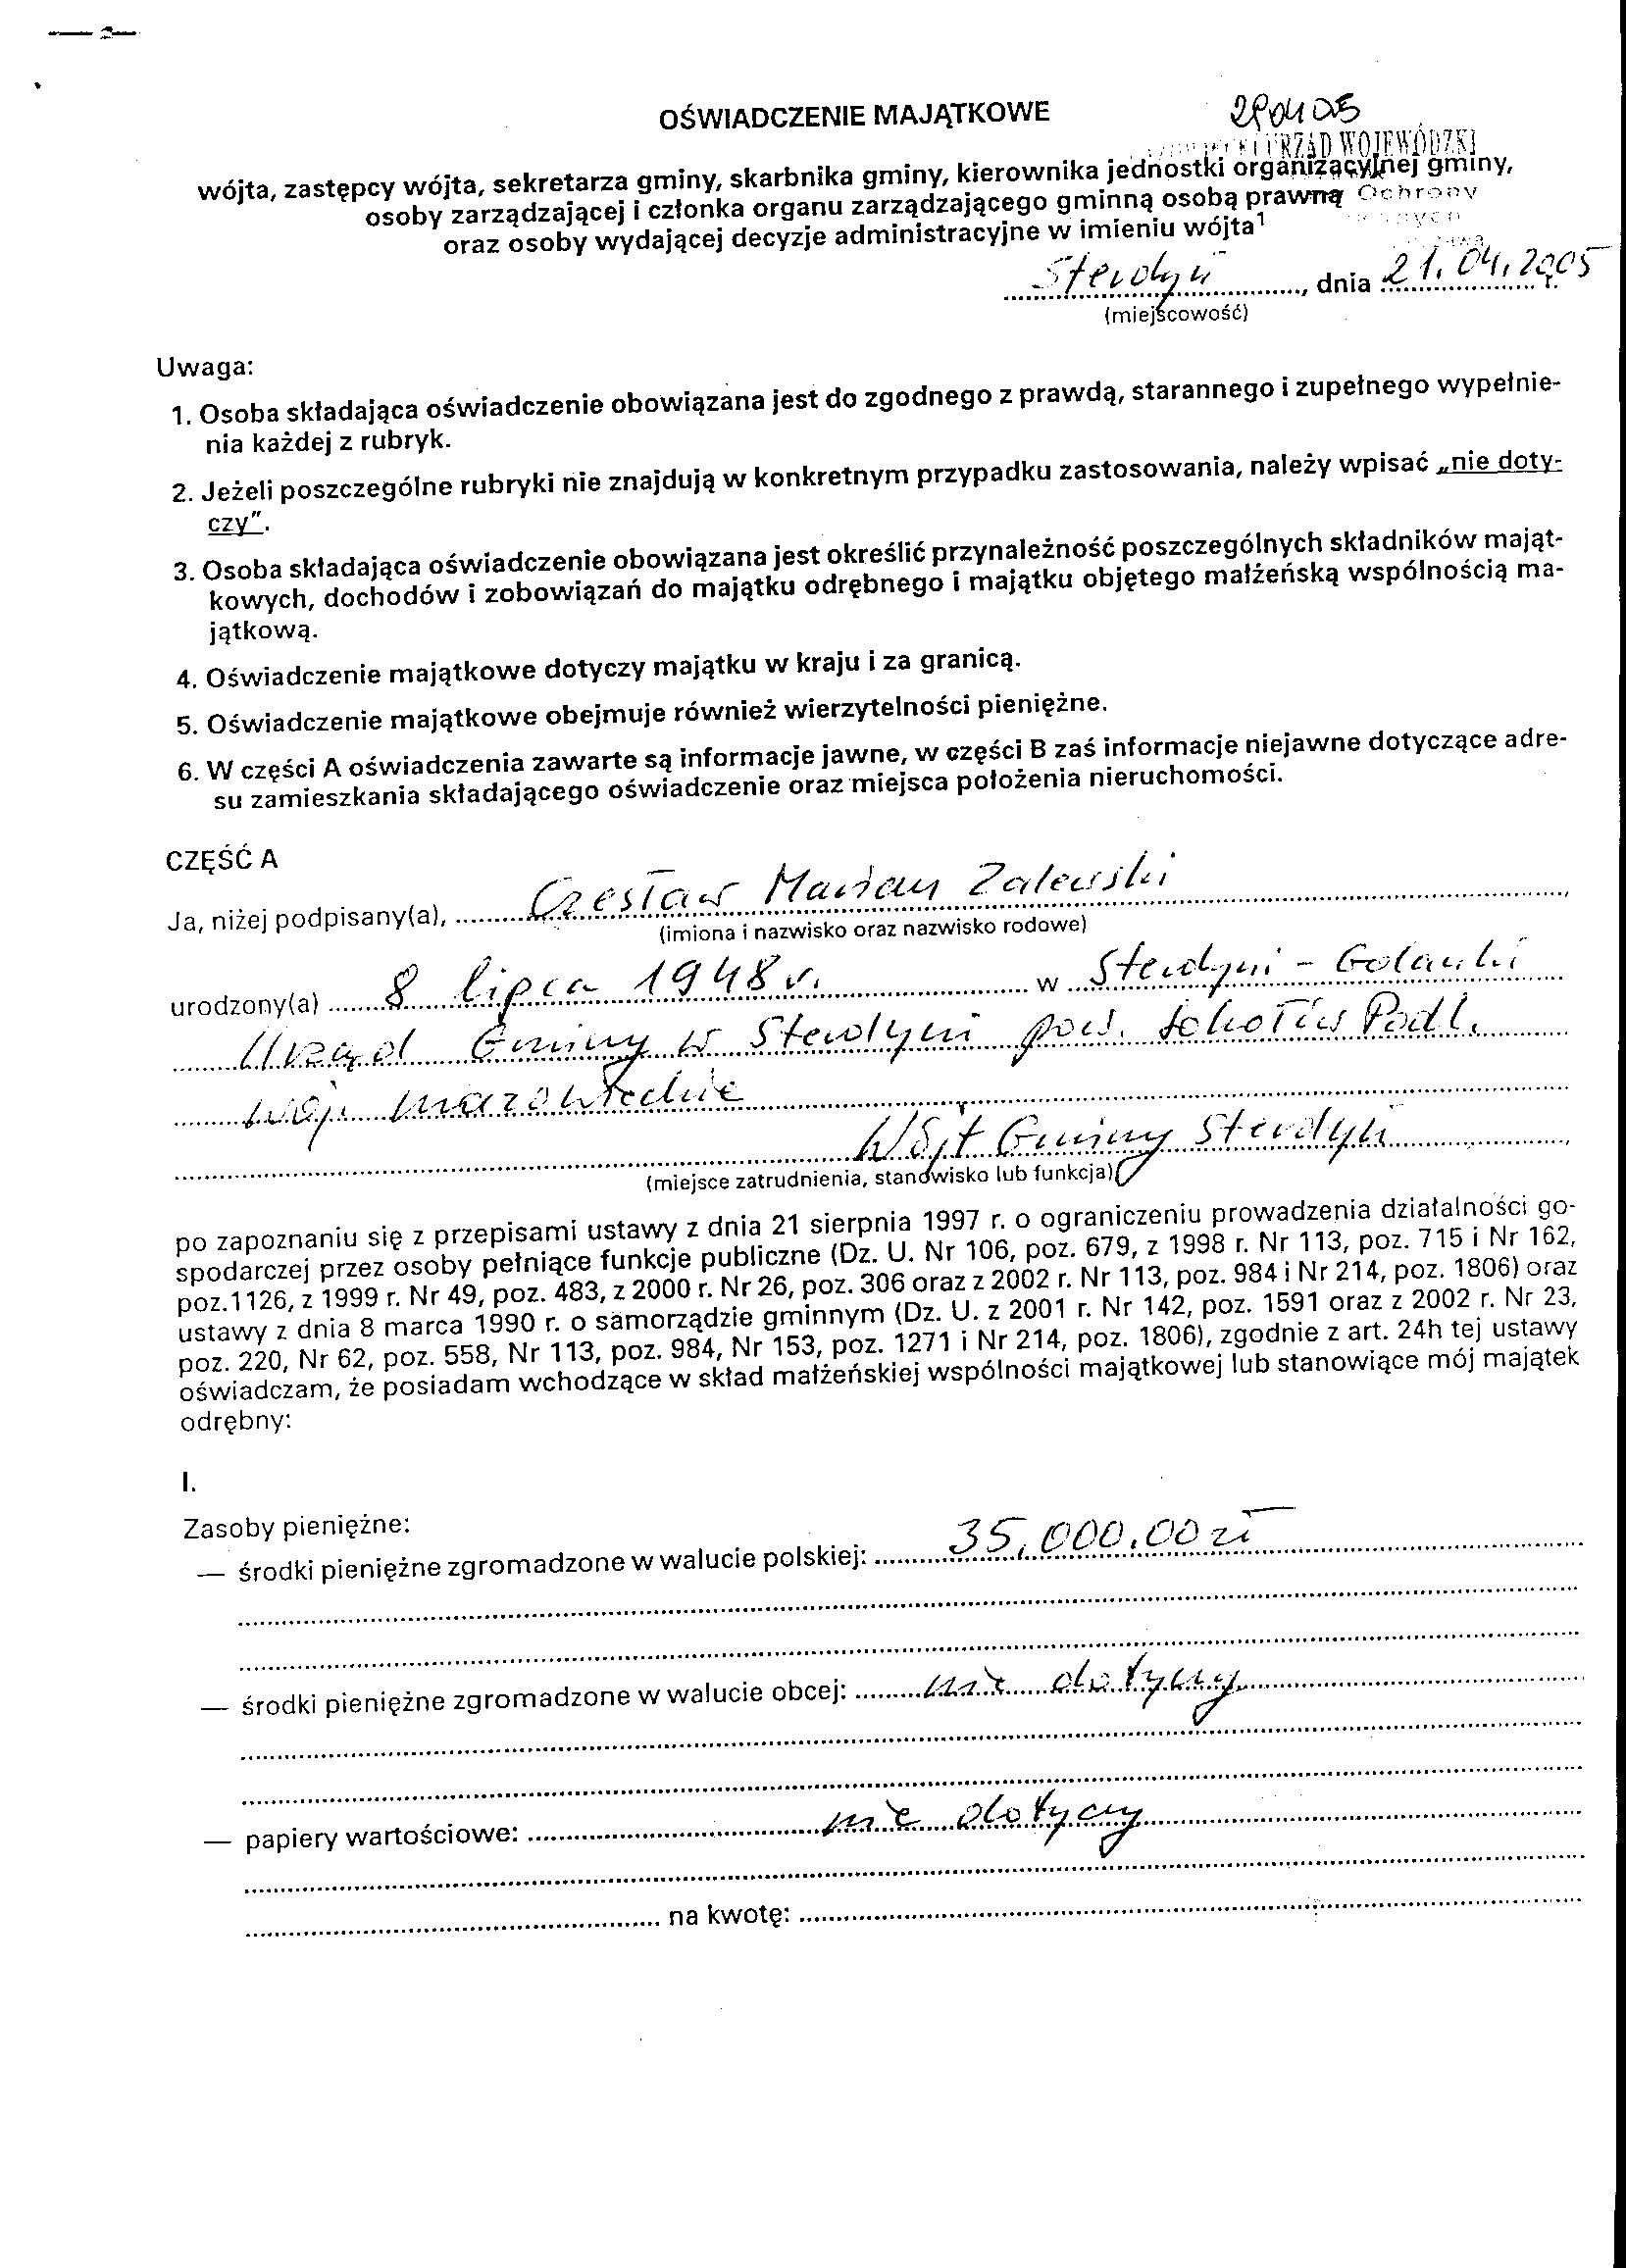 OŚWIADCZENIE MAJĄTKOWE
URZĄD WOJEWÓDZKI
wójta, zastępcy wójta, sekretarza gminy, skarbnika gminy, kierownika jednostki organizacyjnej gminy,
osoby zarządzającej i członka organu zarządzającego gminną osobą prawną Ochrony
oraz osoby wydającej decyzje administracyjne w imieniu wójta¹
Sterdyń, dnia 21.04.2005 r.
(miejscowość)
Uwaga:
1. Osoba składająca oświadczenie obowiązana jest do zgodnego z prawdą, starannego i zupełnego wypełnie-
nia każdej z rubryk.
2. Jeżeli poszczególne rubryki nie znajdują w konkretnym przypadku zastosowania, należy wpisać „nie doty-
czy”.
3. Osoba składająca oświadczenie obowiązana jest określić przynależność poszczególnych składników mająt-
kowych, dochodów i zobowiązań do majątku odrębnego i majątku objętego małżeńską wspólnością ma-
jątkową.
4. Oświadczenie majątkowe dotyczy majątku w kraju i za granicą.
5. Oświadczenie majątkowe obejmuje również wierzytelności pieniężne.
6. W części A oświadczenia zawarte są informacje jawne, w części B zaś informacje niejawne dotyczące adre-
su zamieszkania składającego oświadczenie oraz miejsca położenia nieruchomości.
CZĘŚĆ A
Ja, niżej podpisany(a), Czesław Marian Zalewski,
(imiona i nazwisko oraz nazwisko rodowe)
urodzony(a) 8 lipca 1948 r. w Sterdyni - Golanki
Urząd Gminy w Sterdyni pow. Sokołów Podl.
woj. mazowieckie
Wójt Gminy Sterdyń,
(miejsce zatrudnienia, stanowisko lub funkcja)
po zapoznaniu się z przepisami ustawy z dnia 21 sierpnia 1997 r. o ograniczeniu prowadzenia działalności go-
spodarczej przez osoby pełniące funkcje publiczne (Dz. U. Nr 106, poz. 679, z 1998 r. Nr 113, poz. 715 i Nr 162,
poz.1126, z 1999 r. Nr 49, poz. 483, z 2000 r. Nr 26, poz. 306 oraz z 2002 r. Nr 113, poz. 984 i Nr 214, poz. 1806) oraz
ustawy z dnia 8 marca 1990 r. o samorządzie gminnym (Dz. U. z 2001 r. Nr 142, poz. 1591 oraz z 2002 r. Nr 23,
poz. 220, Nr 62, poz. 558, Nr 113, poz. 984, Nr 153, poz. 1271 i Nr 214, poz. 1806), zgodnie z art. 24h tej ustawy
oświadczam, że posiadam wchodzące w skład małżeńskiej wspólności majątkowej lub stanowiące mój majątek
odrębny:
I.
Zasoby pieniężne:
— środki pieniężne zgromadzone w walucie polskiej: 35.000.00 zł
— środki pieniężne zgromadzone w walucie obcej: nie dotyczy
— papiery wartościowe: nie dotyczy
na kwotę: